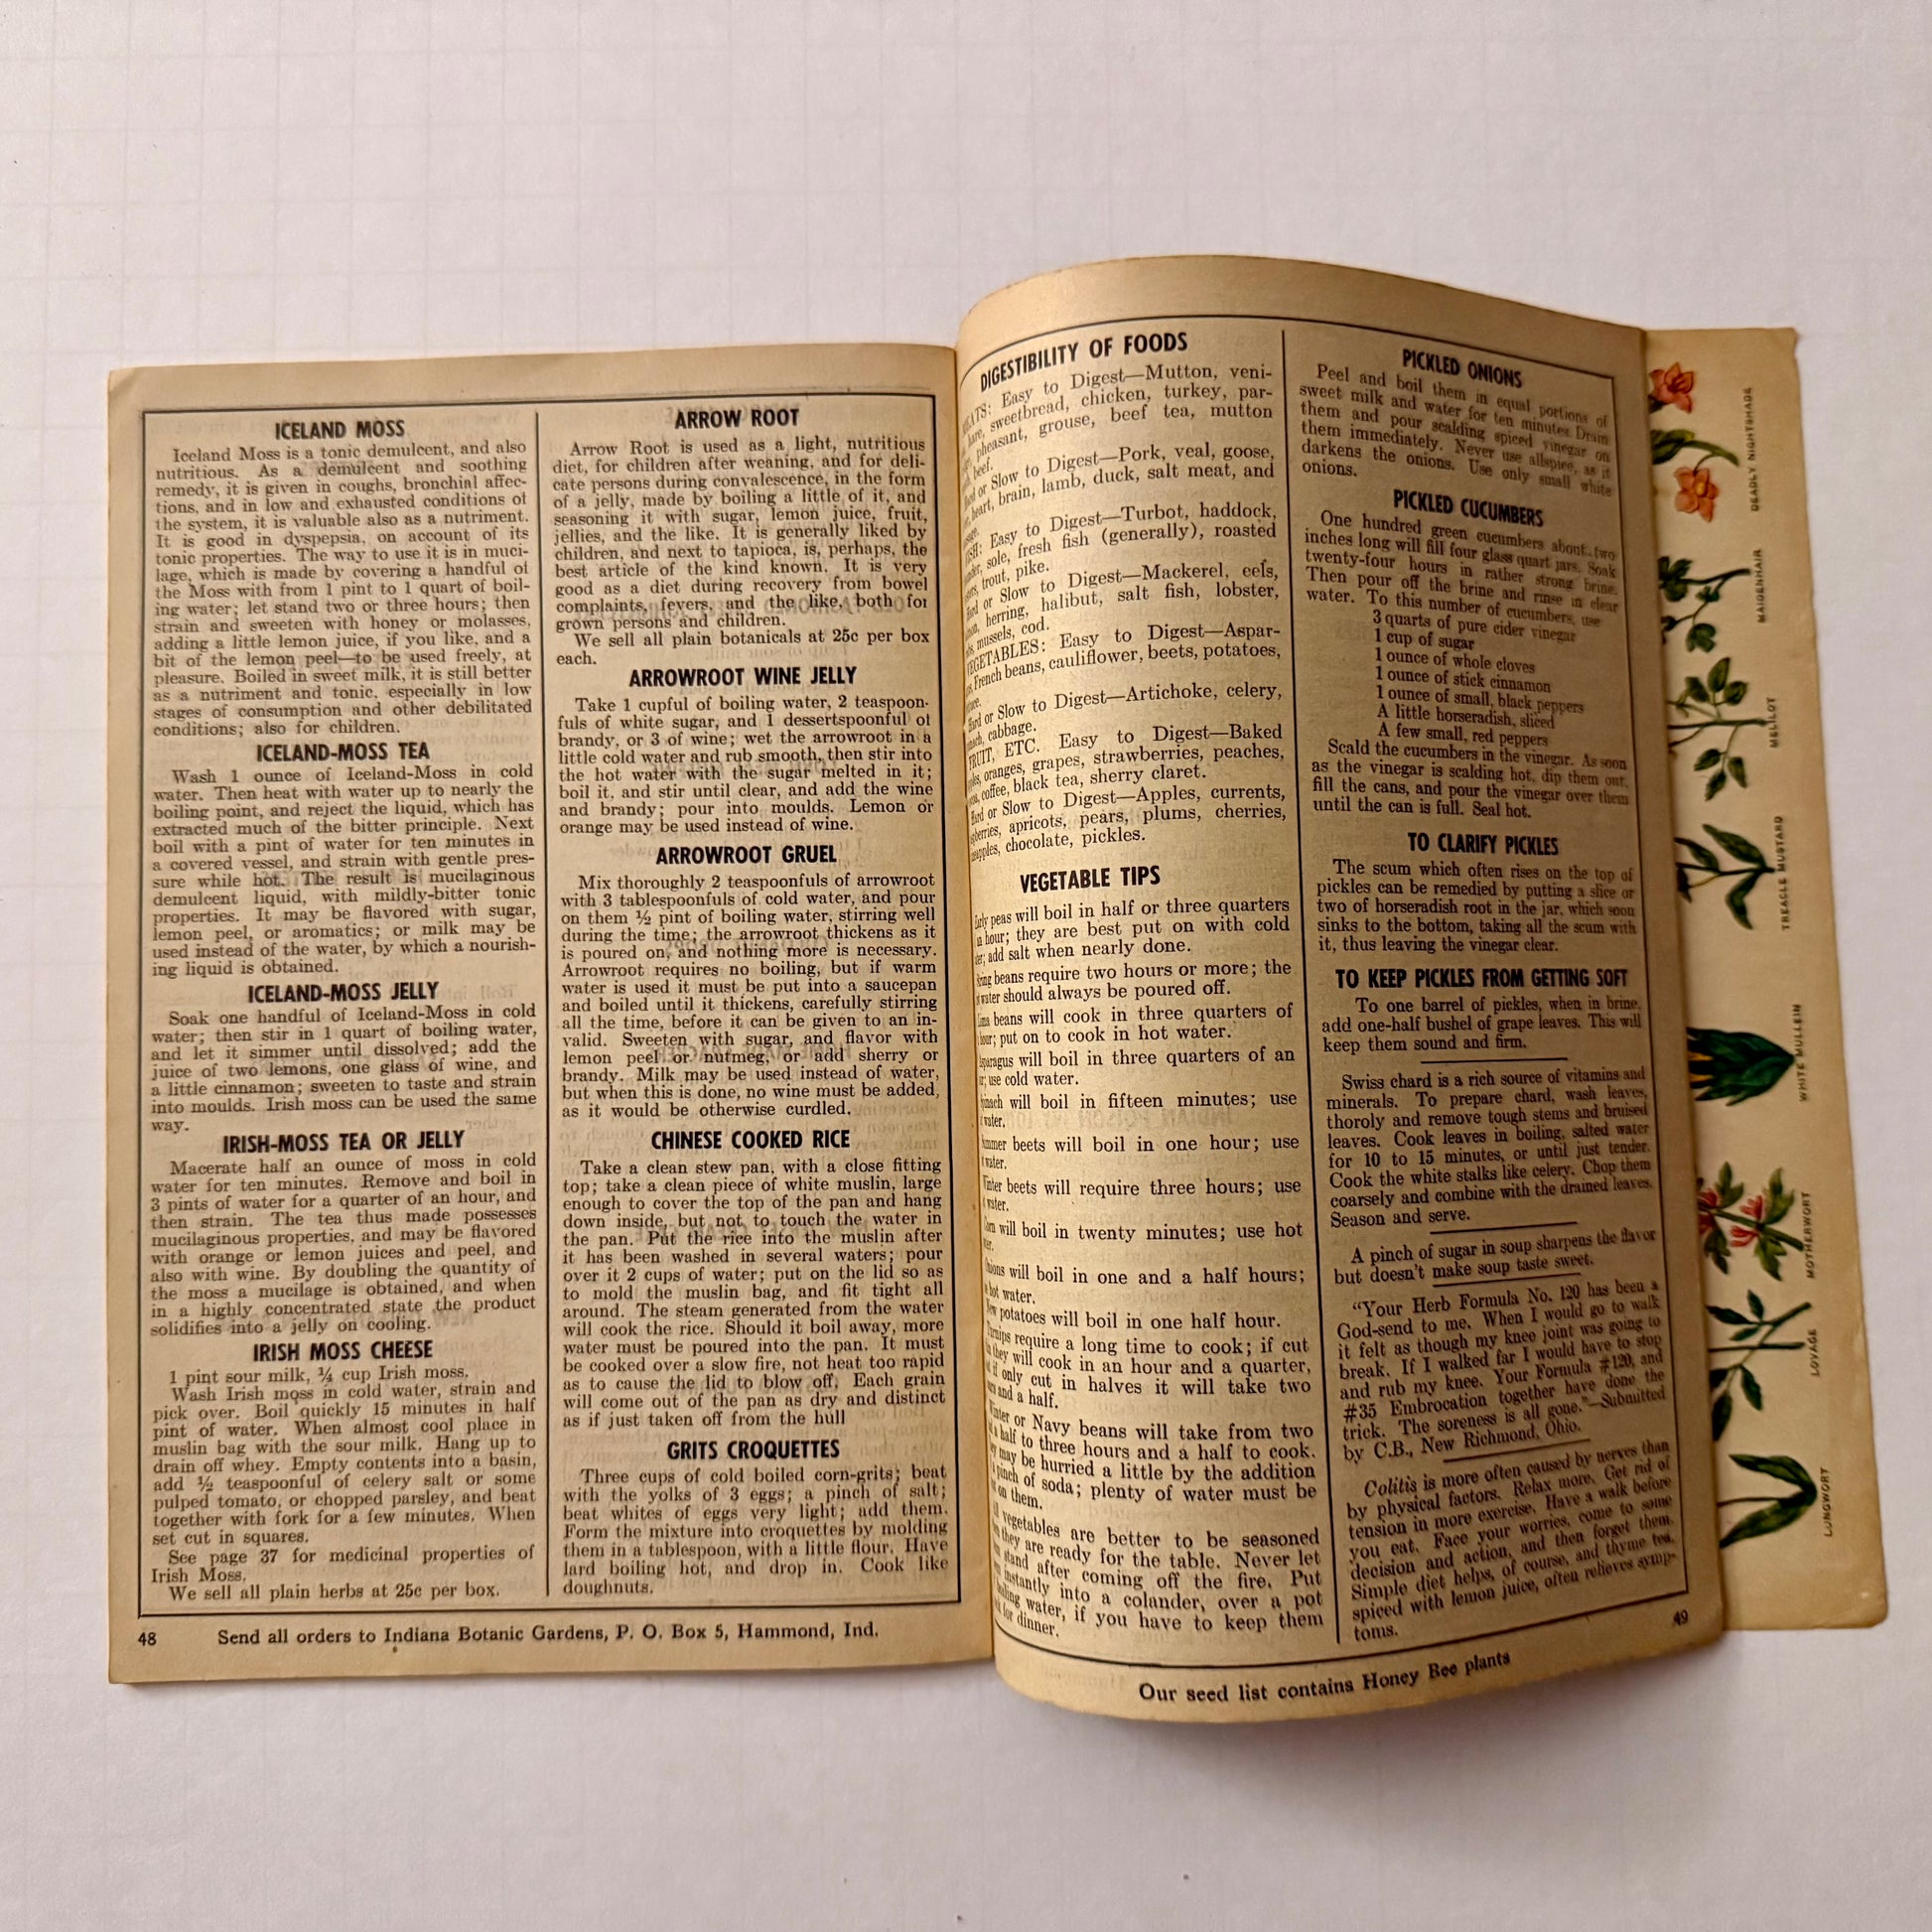 ICELAND MOSS
Iceland Moss is a tonic demulcent, and also
nutritious. As a demulcent and soothing
remedy, it is given in coughs, bronchial affec-
tions, and in low and exhausted conditions of
the system, it is valuable also as a nutriment.
It is good in dyspepsia, on account of its
tonic properties. The way to use it is in muci-
lage, which is made by covering a handful of
the Moss with from 1 pint to 1 quart of boil-
ing water; let stand two or three hours; then
strain and sweeten with honey or molasses,
adding a little lemon juice, if you like, and a
bit of the lemon peel—to be used freely, at
pleasure. Boiled in sweet milk, it is still better
as a nutriment and tonic, especially in low
stages of consumption and other debilitated
conditions; also for children.
ICELAND-MOSS TEA
Wash 1 ounce of Iceland-Moss in cold
water. Then heat with water up to nearly the
boiling point, and reject the liquid, which has
extracted much of the bitter principle. Next
boil with a pint of water for ten minutes in
a covered vessel, and strain with gentle pres-
sure while hot. The result is mucilaginous
demulcent liquid, with mildly-bitter tonic
properties. It may be flavored with sugar,
lemon peel, or aromatics; or milk may be
used instead of the water, by which a nourish-
ing liquid is obtained.
ICELAND-MOSS JELLY
Soak one handful of Iceland-Moss in cold
water; then stir in 1 quart of boiling water,
and let it simmer until dissolved; add the
juice of two lemons, one glass of wine, and
a little cinnamon; sweeten to taste and strain
into moulds. Irish moss can be used the same
way.
IRISH-MOSS TEA OR JELLY
Macerate half an ounce of moss in cold
water for ten minutes. Remove and boil in
3 pints of water for a quarter of an hour, and
then strain. The tea thus made possesses
mucilaginous properties, and may be flavored
with orange or lemon juices and peel, and
also with wine. By doubling the quantity of
the moss a mucilage is obtained, and when
in a highly concentrated state the product
solidifies into a jelly on cooling.
IRISH MOSS CHEESE
1 pint sour milk, ¼ cup Irish moss.
Wash Irish moss in cold water, strain and
pick over. Boil quickly 15 minutes in half
pint of water. When almost cool place in
muslin bag with the sour milk. Hang up to
drain off whey. Empty contents into a basin,
add ½ teaspoonful of celery salt or some
pulped tomato, or chopped parsley, and beat
together with fork for a few minutes. When
set cut in squares.
See page 37 for medicinal properties of
Irish Moss.
We sell all plain herbs at 25c per box.
ARROW ROOT
Arrow Root is used as a light, nutritious
diet, for children after weaning, and for deli-
cate persons during convalescence, in the form
of a jelly, made by boiling a little of it, and
seasoning it with sugar, lemon juice, fruit,
jellies, and the like. It is generally liked by
children, and next to tapioca, is, perhaps, the
best article of the kind known. It is very
good as a diet during recovery from bowel
complaints, fevers, and the like, both for
grown persons and children.
We sell all plain botanicals at 25c per box
each.
ARROWROOT WINE JELLY
Take 1 cupful of boiling water, 2 teaspoon-
fuls of white sugar, and 1 dessertspoonful of
brandy, or 3 of wine; wet the arrowroot in a
little cold water and rub smooth, then stir into
the hot water with the sugar melted in it;
boil it, and stir until clear, and add the wine
and brandy; pour into moulds. Lemon or
orange may be used instead of wine.
ARROWROOT GRUEL
Mix thoroughly 2 teaspoonfuls of arrowroot
with 3 tablespoonfuls of cold water, and pour
on them ½ pint of boiling water, stirring well
during the time; the arrowroot thickens as it
is poured on, and nothing more is necessary.
Arrowroot requires no boiling, but if warm
water is used it must be put into a saucepan
and boiled until it thickens, carefully stirring
all the time, before it can be given to an in-
valid. Sweeten with sugar, and flavor with
lemon peel or nutmeg, or add sherry or
brandy. Milk may be used instead of water,
but when this is done, no wine must be added,
as it would be otherwise curdled.
CHINESE COOKED RICE
Take a clean stew pan, with a close fitting
top; take a clean piece of white muslin, large
enough to cover the top of the pan and hang
down inside, but not to touch the water in
the pan. Put the rice into the muslin after
it has been washed in several waters; pour
over it 2 cups of water; put on the lid so as
to mold the muslin bag, and fit tight all
around. The steam generated from the water
will cook the rice. Should it boil away, more
water must be poured into the pan. It must
be cooked over a slow fire, not heat too rapid
as to cause the lid to blow off. Each grain
will come out of the pan as dry and distinct
as if just taken off from the hull
GRITS CROQUETTES
Three cups of cold boiled corn-grits; beat
with the yolks of 3 eggs; a pinch of salt;
beat whites of eggs very light; add them.
Form the mixture into croquettes by molding
them in a tablespoon, with a little flour. Have
lard boiling hot, and drop in. Cook like
doughnuts.
48 Send all orders to Indiana Botanic Gardens, P. O. Box 5, Hammond, Ind.
DIGESTIBILITY OF FOODS
Easy to Digest—Mutton, veni-
hare, sweetbread, chicken, turkey, par-
pheasant, grouse, beef tea, mutton
beef.
or Slow to Digest—Pork, veal, goose,
heart, brain, lamb, duck, salt meat, and
Easy to Digest—Turbot, haddock,
sole, fresh fish (generally), roasted
trout, pike.
or Slow to Digest—Mackerel, eels,
herring, halibut, salt fish, lobster,
mussels, cod.
VEGETABLES: Easy to Digest—Aspar-
French beans, cauliflower, beets, potatoes,
Hard or Slow to Digest—Artichoke, celery,
cabbage.
FRUIT, ETC. Easy to Digest—Baked
oranges, grapes, strawberries, peaches,
coffee, black tea, sherry claret.
Hard or Slow to Digest—Apples, currents,
apricots, pears, plums, cherries,
chocolate, pickles.
VEGETABLE TIPS
Early peas will boil in half or three quarters
hour; they are best put on with cold
add salt when nearly done.
beans require two hours or more; the
water should always be poured off.
beans will cook in three quarters of
hour; put on to cook in hot water.
Asparagus will boil in three quarters of an
use cold water.
Spinach will boil in fifteen minutes; use
water.
Summer beets will boil in one hour; use
water.
Winter beets will require three hours; use
water.
Corn will boil in twenty minutes; use hot
Onions will boil in one and a half hours;
hot water.
New potatoes will boil in one half hour.
Turnips require a long time to cook; if cut
they will cook in an hour and a quarter,
if only cut in halves it will take two
and a half.
Winter or Navy beans will take from two
half to three hours and a half to cook.
may be hurried a little by the addition
pinch of soda; plenty of water must be
on them.
vegetables are better to be seasoned
they are ready for the table. Never let
stand after coming off the fire. Put
instantly into a colander, over a pot
water, if you have to keep them
for dinner.
PICKLED ONIONS
Peel and boil them in equal portions of
sweet milk and water for ten minutes. Drain
them and pour scalding spiced vinegar on
them immediately. Never use allspice, as it
darkens the onions. Use only small white
onions.
PICKLED CUCUMBERS
One hundred green cucumbers about two
inches long will fill four glass quart jars. Soak
twenty-four hours in rather strong brine.
Then pour off the brine and rinse in clear
water. To this number of cucumbers, use
3 quarts of pure cider vinegar
1 cup of sugar
1 ounce of whole cloves
1 ounce of stick cinnamon
1 ounce of small, black peppers
A little horseradish, sliced
A few small, red peppers
Scald the cucumbers in the vinegar. As soon
as the vinegar is scalding hot, dip them out,
fill the cans, and pour the vinegar over them
until the can is full. Seal hot.
TO CLARIFY PICKLES
The scum which often rises on the top of
pickles can be remedied by putting a slice or
two of horseradish root in the jar, which soon
sinks to the bottom, taking all the scum with
it, thus leaving the vinegar clear.
TO KEEP PICKLES FROM GETTING SOFT
To one barrel of pickles, when in brine,
add one-half bushel of grape leaves. This will
keep them sound and firm.
Swiss chard is a rich source of vitamins and
minerals. To prepare chard, wash leaves,
thoroly and remove tough stems and bruised
leaves. Cook leaves in boiling, salted water
for 10 to 15 minutes, or until just tender.
Cook the white stalks like celery. Chop them
coarsely and combine with the drained leaves.
Season and serve.
A pinch of sugar in soup sharpens the flavor
but doesn't make soup taste sweet.
"Your Herb Formula No. 120 has been a
God-send to me. When I would go to walk
it felt as though my knee joint was going to
break. If I walked far I would have to stop
and rub my knee. Your Formula #120, and
#35 Embrocation together have done the
trick. The soreness is all gone."—Submitted
by C.B., New Richmond, Ohio.
Colitis is more often caused by nerves than
by physical factors. Relax more. Get rid of
tension in more exercise. Have a walk before
you eat. Face your worries, come to some
decision and action, and then forget them.
Simple diet helps, of course, and thyme tea,
spiced with lemon juice, often relieves symp-
toms.
49
Our seed list contains Honey Bee plants
DEADLY NIGHTSHADE
MAIDENHAIR
MELILOT
TREACLE MUSTARD
WHITE MULLEIN
MOTHERWORT
LOVAGE
LUNGWORT